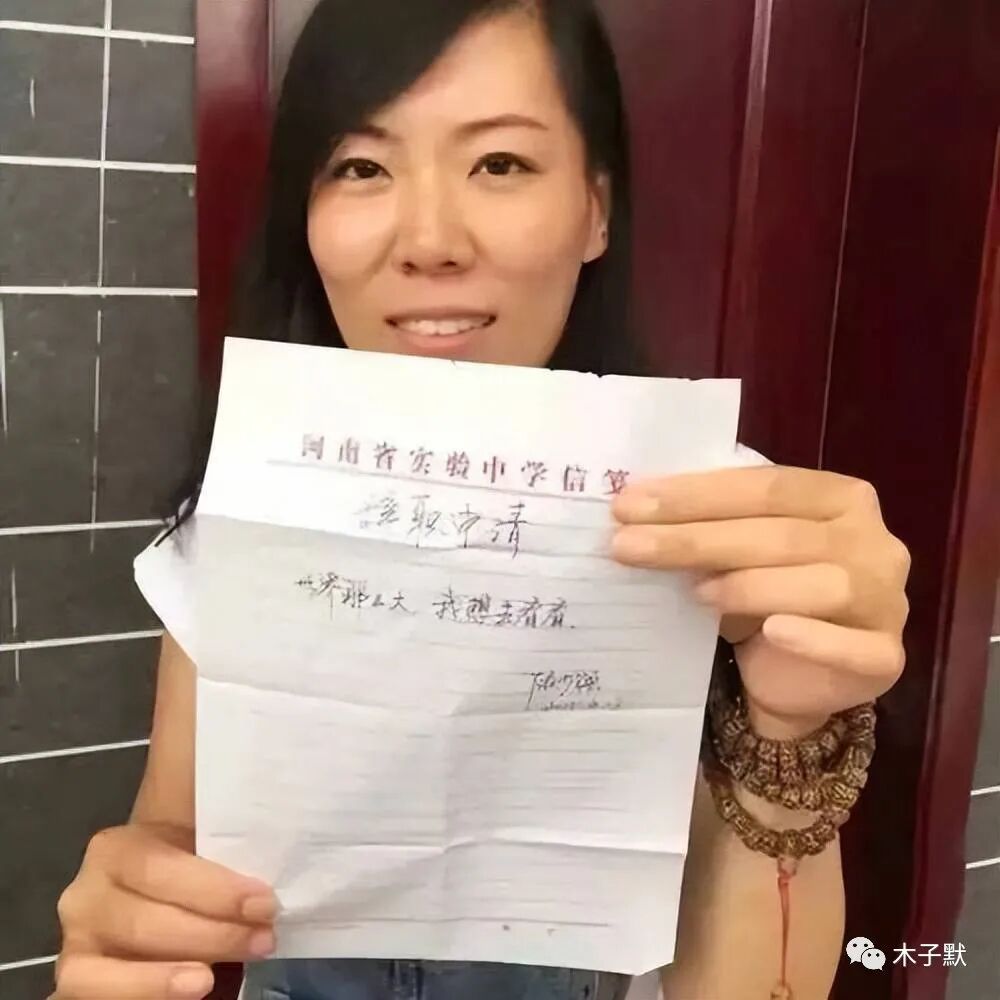 河南省实验中学信笺
辞职申请
世界那么大 我想去看看.
木子默